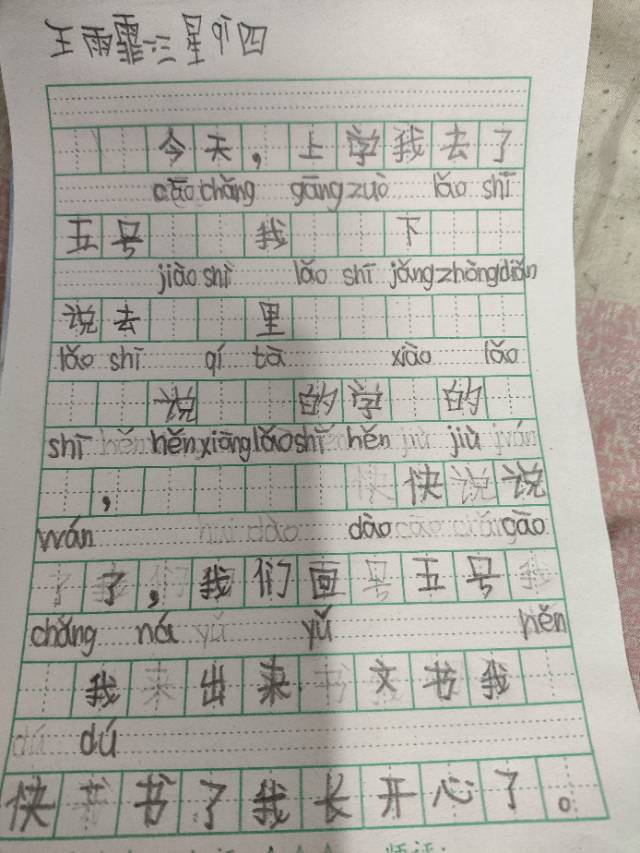 王雨霏 三 星qī四
今天，上学我去了
cāo chǎng gāng zuò lǎo shī
五号 我 下
jiào shì lǎo shī jǎng zhòng diǎn
说去 里
lǎo shī qí tā xiào lǎo
说 的学 的
shī hěn xiāng lǎo shī hěn jiù
， 快说
wán dào cāo
了，我们回五号
chǎng ná yǔ hěn
我出来文书我
dú
快书了我长开心了。